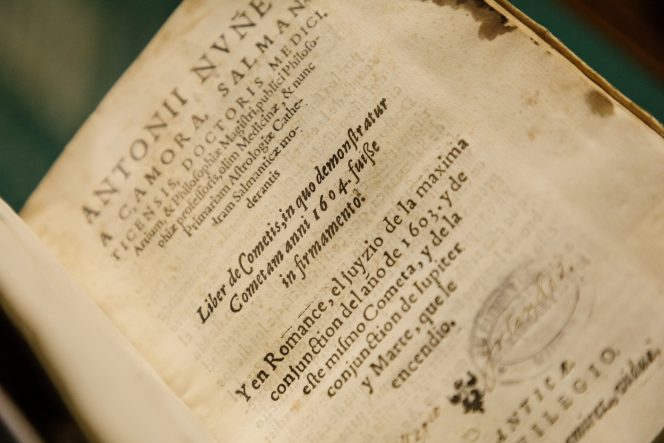 ANTONII NVÑE
A CAMORA, SALMAN
TICENSIS, DOCTORIS MEDICI,
Artium & Philosophiæ Magistri publici Philoso-
phiæ professoris, olim Medicinæ, & nunc
Primariam Astrologiæ Cathe-
dram Salmanticæ mo-
derantis
Liber de Cometis, in quo demonstratur
Cometam anni 1604. fuisse
in firmamento.
Y en Romance, el juyzio de la maxima
conjunction del año de 1603, y de
este mismo Cometa, y de la
conjunction de Iupiter
y Marte, que le
encendio.
ANTICÆ
ILEGIO.